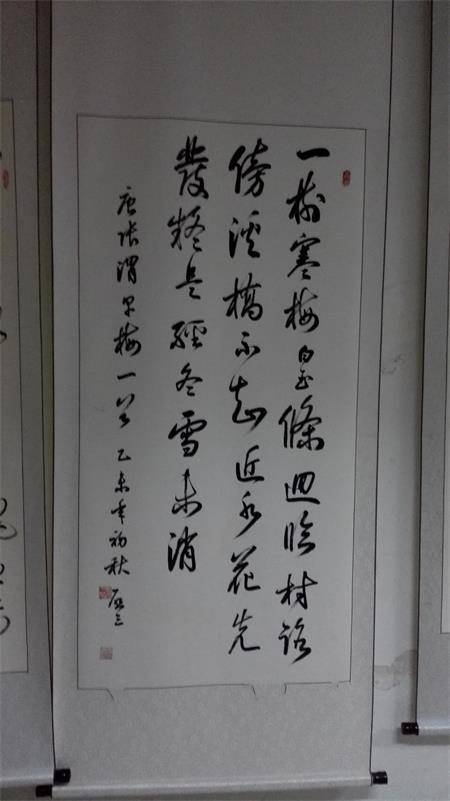 一樹寒梅白玉條迴臨村路
傍溪橋不知近水花先
發疑是經冬雪未消
唐張渭早梅一首 乙未年初秋